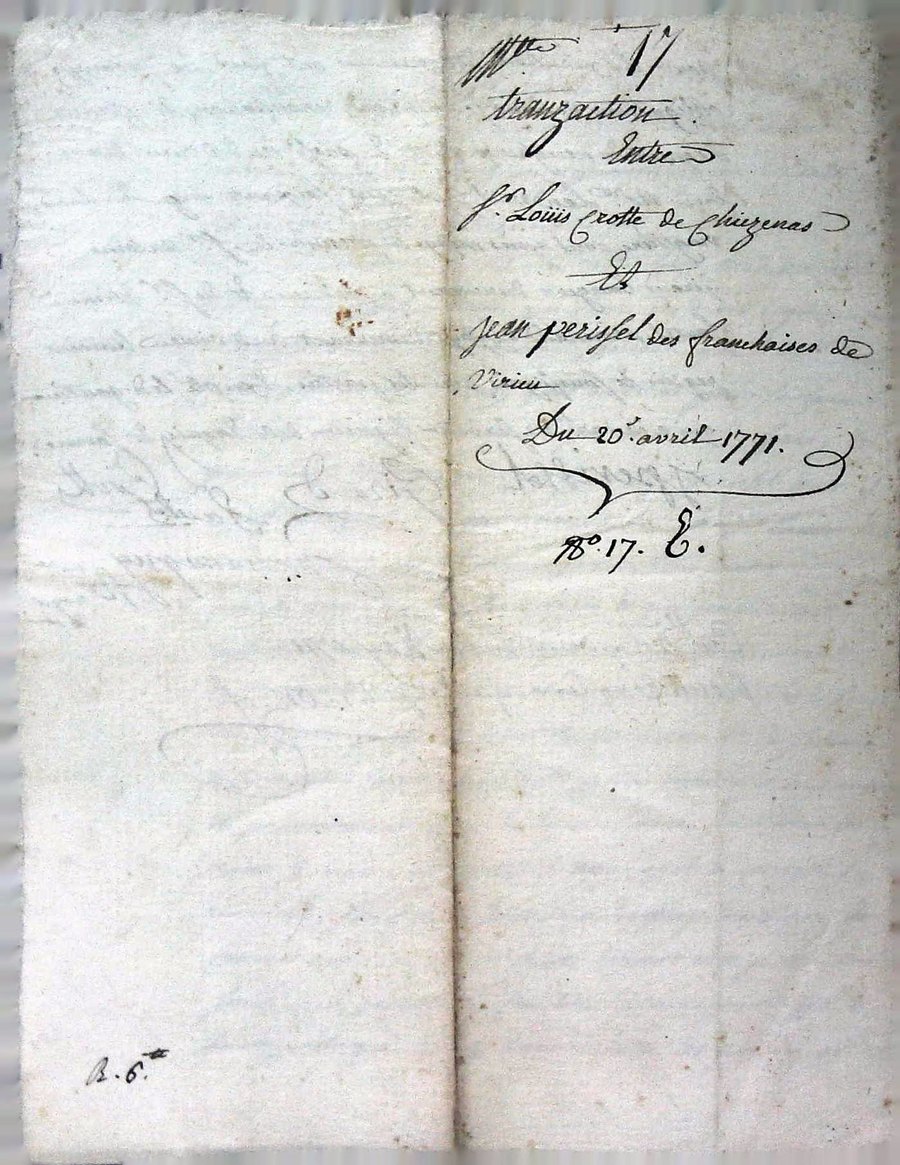 17
tranzaction.
Entre
Sr. Loüis Crotte de Chiezenas
Et
jean perissel des franchaises de
Virieu
Du 20e. avril 1771.
No. 17. E.
R. 6.tt